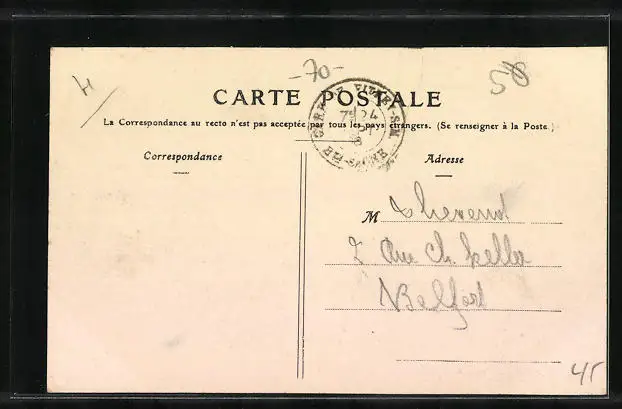 -70-
58
CARTE POSTALE
La Correspondance au recto n'est pas acceptée par tous les pays étrangers. (Se renseigner à la Poste.)
GARE DE VITREY-S-M
7 24
8
HTE-SAÔNE
Correspondance
Adresse
M Thevenot
2 Rue Ch. Keller
Belfort
45